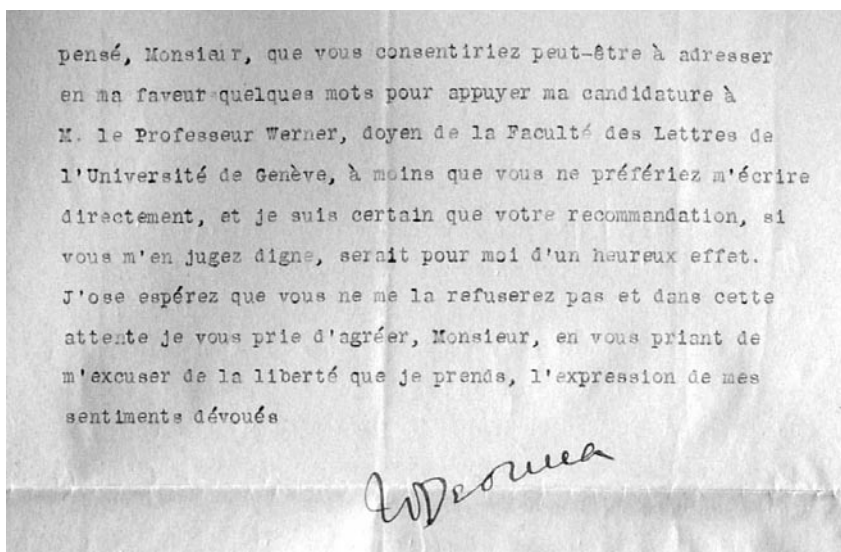 pensé, Monsieur, que vous consentiriez peut-être à adresser
en ma faveur quelques mots pour appuyer ma candidature à
M. le Professeur Werner, doyen de la Faculté des Lettres de
l'Université de Genève, à moins que vous ne préfériez m'écrire
directement, et je suis certain que votre recommandation, si
vous m'en jugez digne, serait pour moi d'un heureux effet.
J'ose espérez que vous ne me la refuserez pas et dans cette
attente je vous prie d'agréer, Monsieur, en vous priant de
m'excuser de la liberté que je prends, l'expression de mes
sentiments dévoués
WDeonna